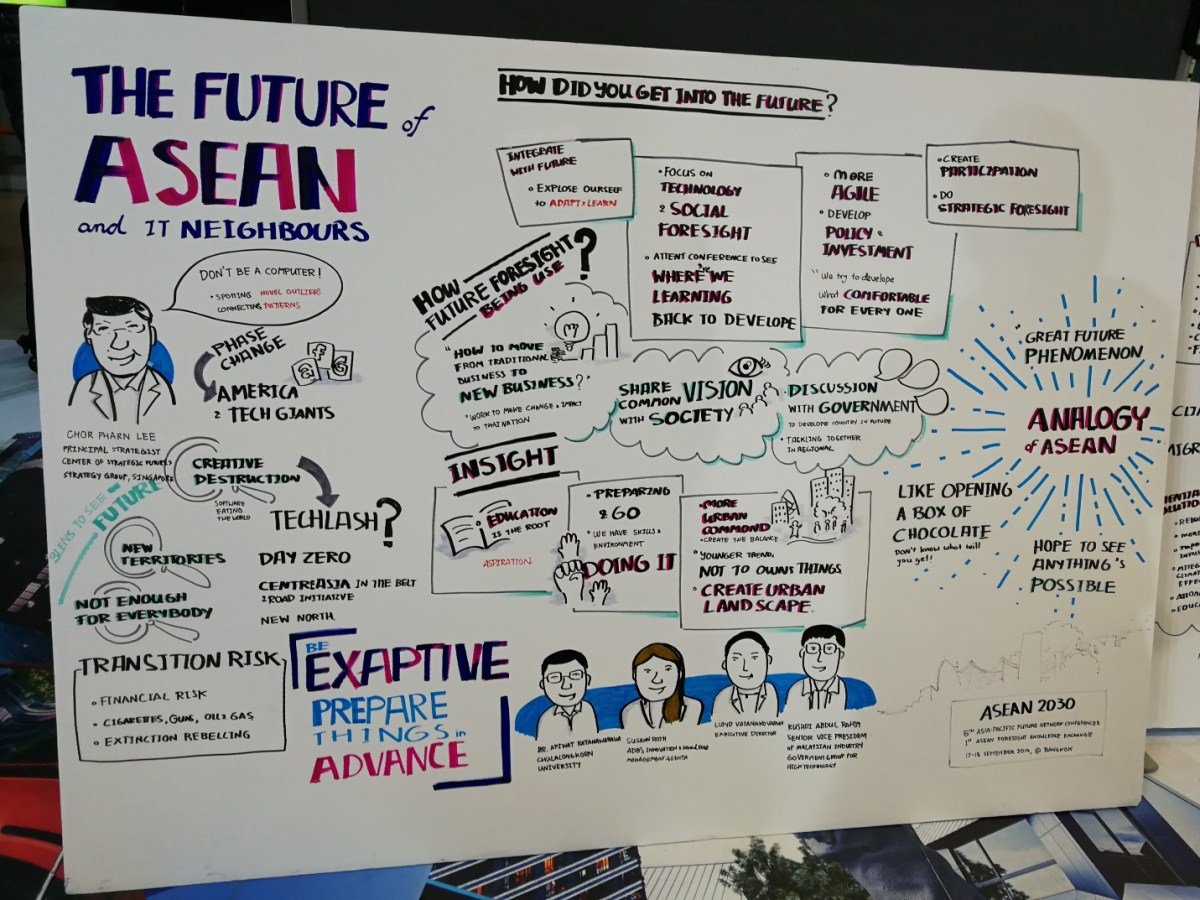 THE FUTURE of
ASEAN
and IT NEIGHBOURS
DON'T BE A COMPUTER!
• SPOTTING NOVEL OUTLIERS
CONNECTING PATTERNS
PHASE
CHANGE
AMERICA
& TECH GIANTS
CHOR PHARN LEE
PRINCIPAL STRATEGIST
CENTER OF STRATEGIC FUTURES
STRATEGY GROUP, SINGAPORE
TO SEE
FUTURE
CREATIVE
DESTRUCTION
SOFTWARE
EATING
THE WORLD
TECHLASH?
NEW
TERRITORIES
NOT ENOUGH
FOR EVERYBODY
DAY ZERO
CENTREASIA IN THE BELT
& ROAD INITIATIVE
NEW NORTH
TRANSITION RISK
• FINANCIAL RISK
• CIGARETTES, GUNS, OIL & GAS
• EXTINCTION REBELLING
BE
EXAPTIVE
PREPARE
THINGS in
ADVANCE
HOW DID YOU GET INTO THE FUTURE?
INTEGRATE
WITH FUTURE
• EXPLOSE OURSELF
to ADAPT & LEARN
• FOCUS ON
TECHNOLOGY
& SOCIAL
FORESIGHT
• ATTENT CONFERENCE TO SEE
WHERE WE'RE
LEARNING
BACK TO DEVELOPE
• MORE
AGILE
• DEVELOP
POLICY &
INVESTMENT
"We try to develope
what COMFORTABLE
FOR EVERY ONE
• CREATE
PARTICIPATION
• DO
STRATEGIC FORESIGHT
HOW
FUTURE FORESIGHT
BEING USE
?
"HOW TO MOVE
FROM TRADITIONAL
BUSINESS TO
NEW BUSINESS?"
• WORK TO MAKE CHANGE & IMPACT
TO THAI NATION
SHARE
COMMON VISION
WITH SOCIETY
• DISCUSSION
WITH GOVERNMENT
TO DEVELOPE COUNTRY IN FUTURE
• TACKLING TOGETHER
IN REGIONAL
INSIGHT
• EDUCATION
IS THE ROOT
ASPIRATION
• PREPARING
& GO
• WE HAVE SKILLS &
ENVIRONMENT
DOING IT
• MORE
URBAN
COMMOND
• CREATE THE BALANCE
• YOUNGER TREND,
NOT TO OWNS THINGS
• CREATE URBAN
LANDSCAPE.
"GREAT FUTURE
PHENOMENON
ANALOGY
of ASEAN
LIKE OPENING
A BOX OF
CHOCOLATE
DON't know what will
you get!
HOPE TO SEE
ANYTHING'S
POSSIBLE
CHULALONGKORN
UNIVERSITY
SUSANN ROTH
ADB'S INNOVATION & KNOWLEDGE
EXECUTIVE DIRECTOR
SENIOR VICE PRESIDENT
OF MALAYSIAN INDUSTRY
GOVERMENT GROUP FOR
HIGH TECHNOLOGY
ASEAN 2030
5TH ASIA-PACIFIC FUTURE NETWORK CONFERENCES
1ST ASEAN FORESIGHT KNOWLEDGE EXCHANGE
17-18 SEPTEMBER 2019, @ BANGKOK